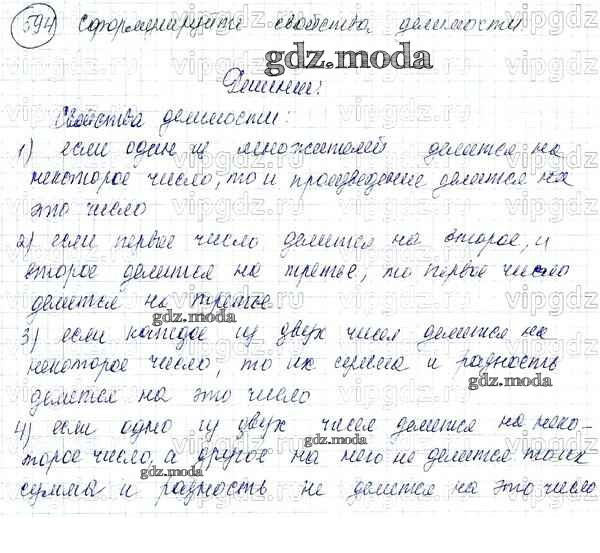 594 Сформулируйте свойства делимости.
gdz.moda
Решение:
Свойства делимости:
1) если один из множителей делится на
некоторое число, то и произведение делится на
это число
2) если первое число делится на второе, и
второе делится на третье, то первое число
делится на третье.
gdz.moda
3) если каждое из двух чисел делится на
некоторое число, то их сумма и разность
gdz.moda
делится на это число
4) если одно из двух чисел делится на неко-
gdz.moda
торое число, а другое на него не делится то их
gdz.moda
сумма и разность не делится на это число
vipgdz.ru